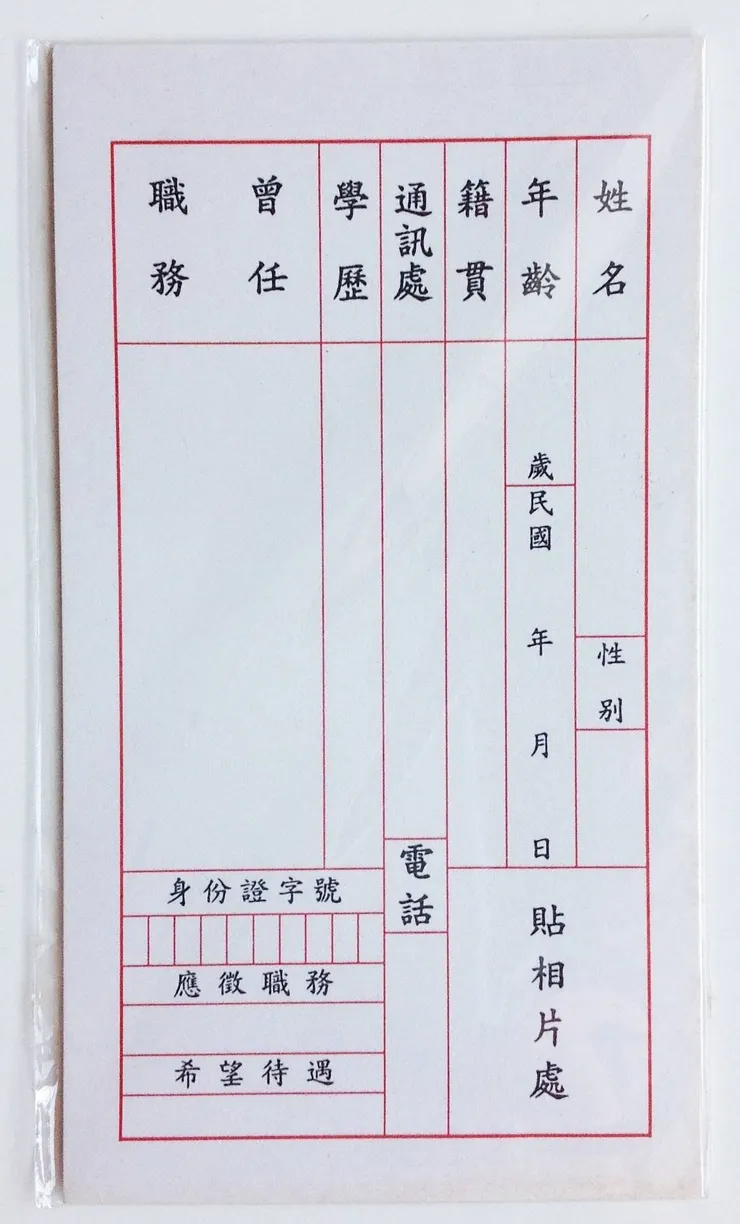 姓名
性別
年齡
歲
民國 年 月 日
籍貫
通訊處
電話
學歷
曾任
職務
貼相片處
身份證字號
應徵職務
希望待遇